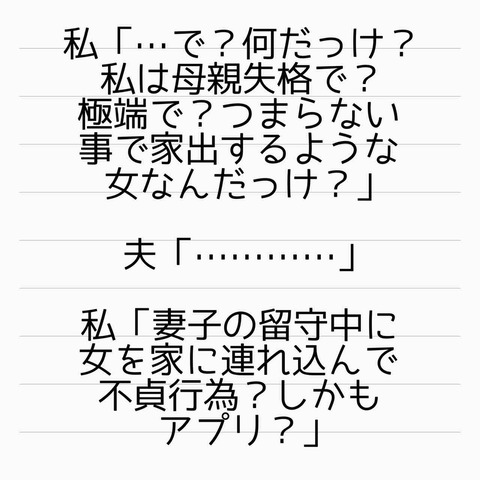 私「…で？何だっけ？
私は母親失格で？
極端で？つまらない
事で家出するような
女なんだっけ？」
夫「…………」
私「妻子の留守中に
女を家に連れ込んで
不貞行為？しかも
アプリ？」